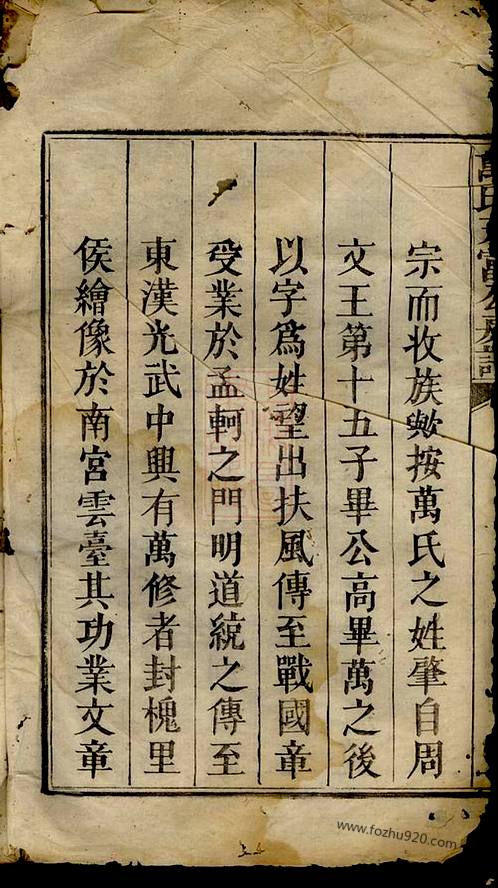 宗而收族歟按萬氏之姓肇自周
文王第十五子畢公高畢萬之後
以字爲姓望出扶風傳至戰國章
受業於孟軻之門明道統之傳至
東漢光武中興有萬修者封槐里
侯繪像於南宮雲臺其功業文章
www.fozhu920.com